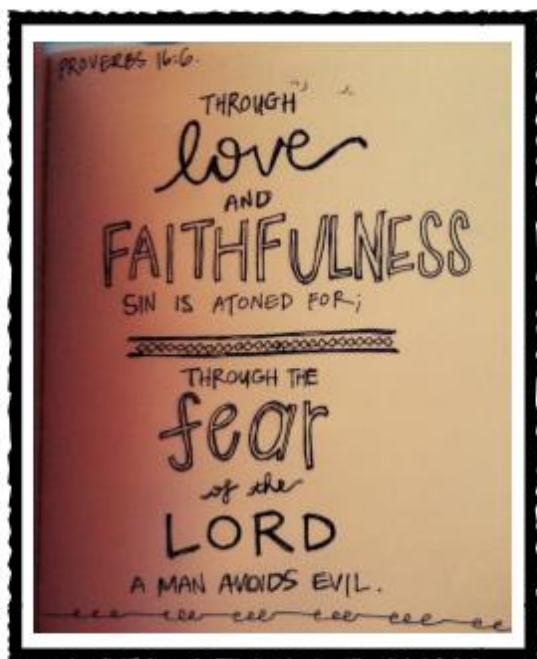 PROVERBS 16:6.
THROUGH
love
AND
FAITHFULNESS
SIN IS ATONED FOR;
THROUGH THE
fear
of the
LORD
A MAN AVOIDS EVIL.